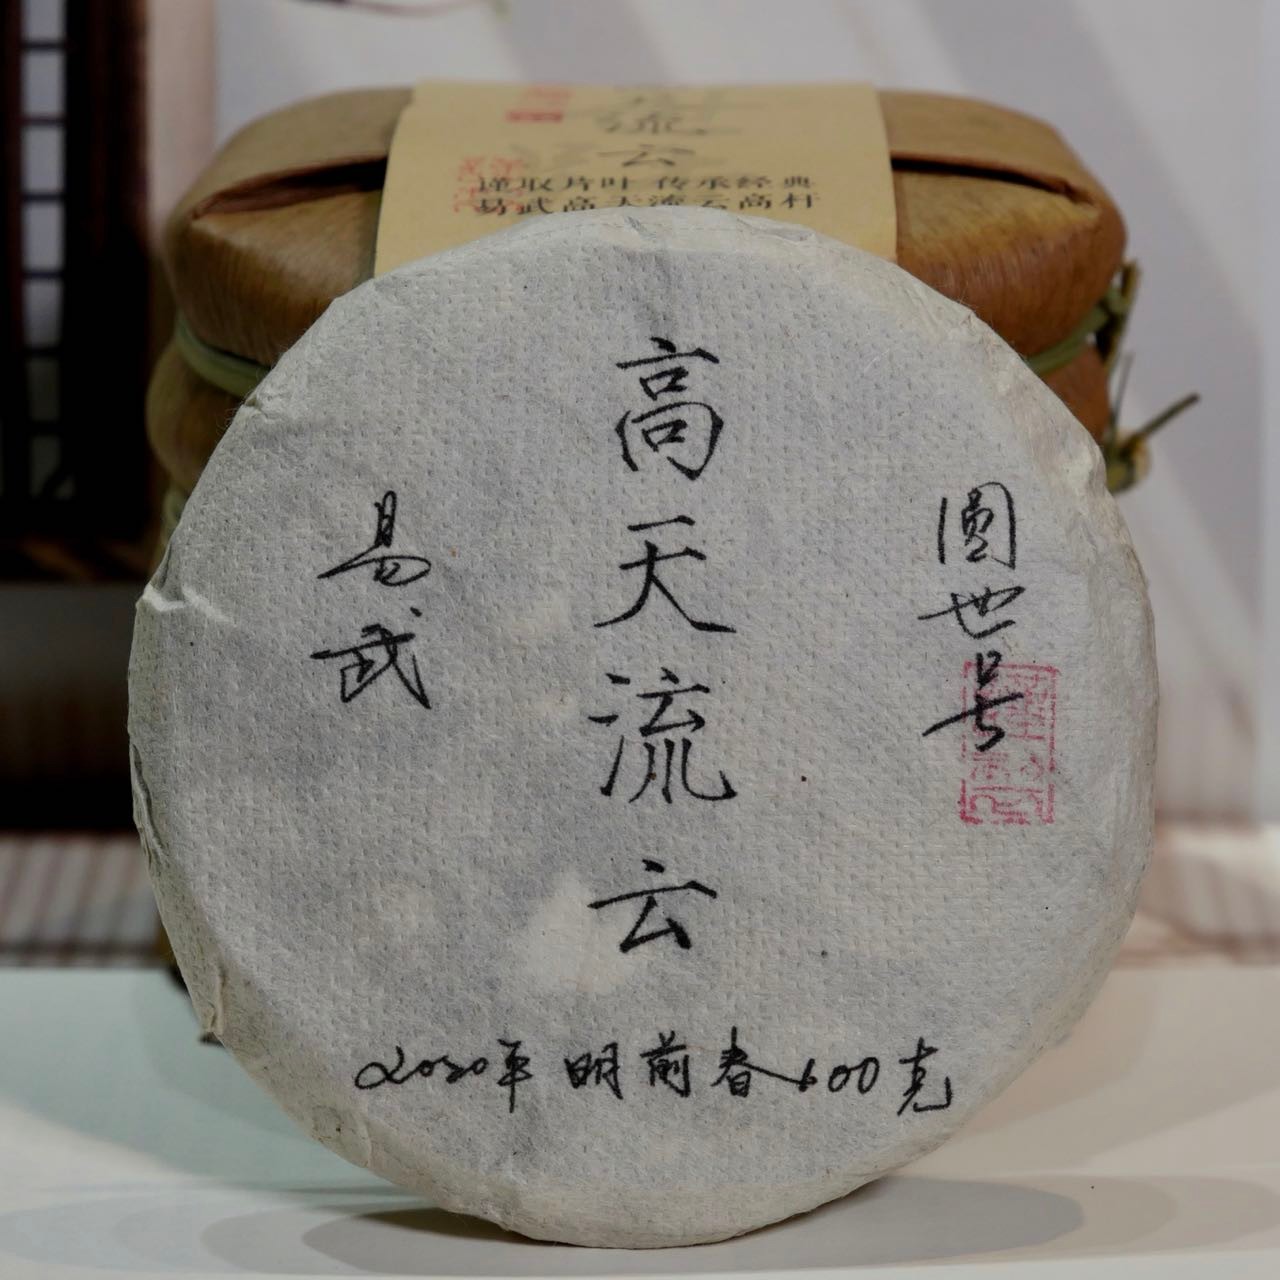 流云
谨取片叶 传承经典
易武高天流云高杆
高天流云
圆世号
易武
2020年 明前春 600克